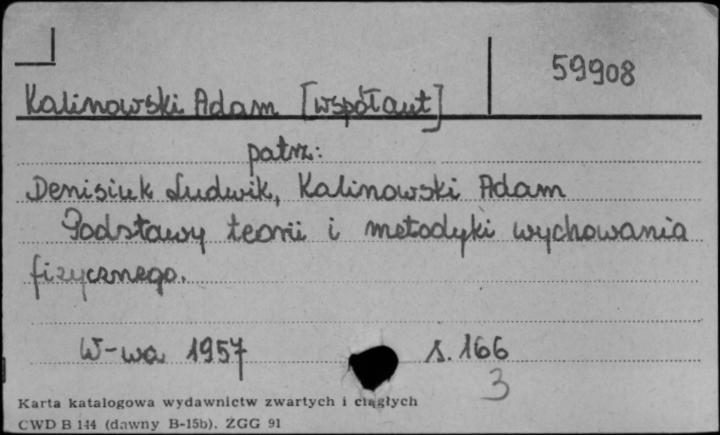 59908
Kalinowski Adam [współaut]
patrz:
Denisiuk Ludwik, Kalinowski Adam
Podstawy teorii i metodyki wychowania
fizycznego.
W-wa 1957 s. 166
3
Karta katalogowa wydawnictw zwartych i ciągłych
CWD B 144 (dawny B-15b). ZGG 91